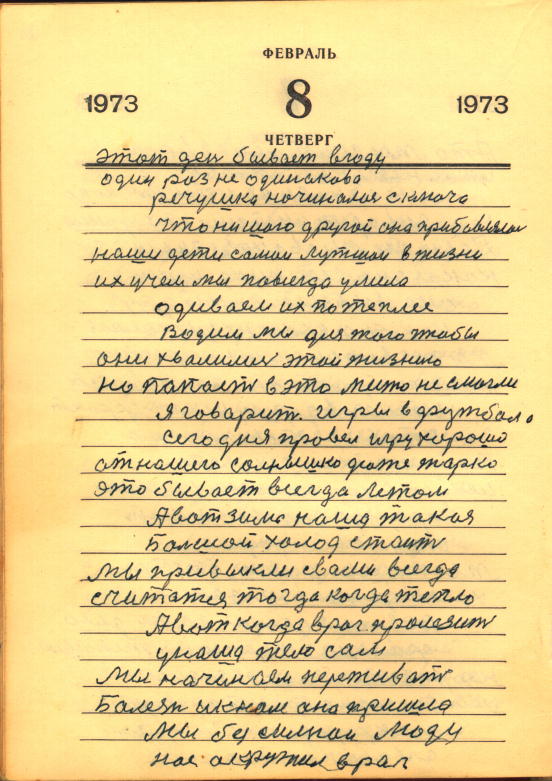 ФЕВРАЛЬ
1973 8 1973
ЧЕТВЕРГ
этот ден бывает вгоду
один раз не одинакова
речушка начиналая с ключа
что нишого другой она прибавиляи
наши дети самои лутшои в жизни
их учем мы павсегда умила
одиваем их по теплее
Водим мы для того чтобы
они хвалилися этой жизнию
но папаст в это место не смогли
Я говарит. игры в дружбало
сегодня провел игру хорошо
от нашего солнышко даже жарко
это бывает всегда летом
Авот зима наша такая
Балшой холод стаит
мы привыкли свами всегда
считатия тогда когда тепло
Авот когда враг пролезит
унаша тело сам
мы начинаем переживат
Балезн икнам она пришла
мы бе силнои люди
нас акружил враг